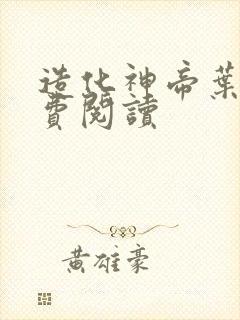 造化神帝葉
費閱讀
黃雄豪